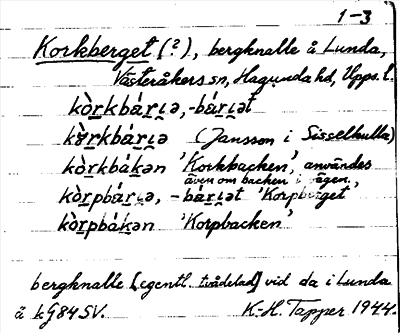 1-3
Korkberget (?), bergknalle å Lunda,
Västeråkers sn, Hagunda hd, Upps. l.
kòrkbárịə, -bárịət
kɷ̀rkbárịə (Jansson i Sisselhulla)
kòrkbákən 'Korkbacken', användes
även om backen i vägen.
kòrpbárịə, -bárịət 'Korpberget'
kòrpbákən 'Korpbacken'
bergknalle [egentl. tvådelad] vid da i Lunda
ä kg 84 SV. K.-H. Tapper 1944.